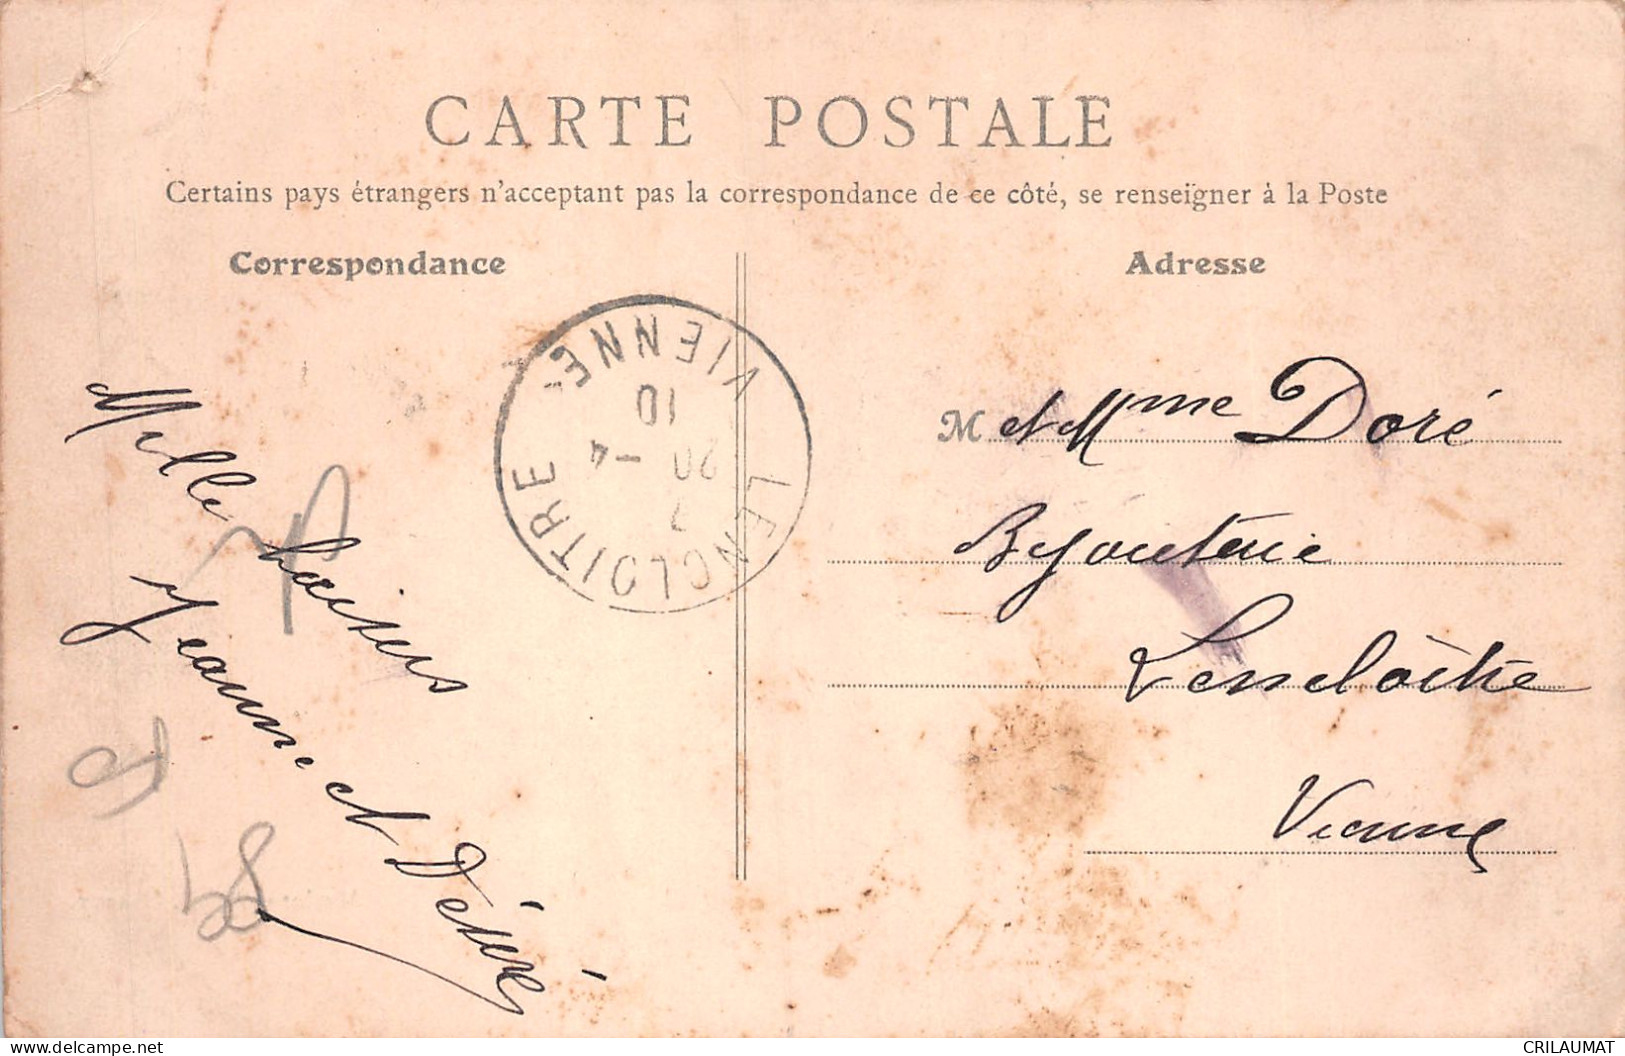 CARTE POSTALE
Certains pays étrangers n'acceptant pas la correspondance de ce côté, se renseigner à la Poste
Correspondance
Adresse
Mille baisers
Jeanne et Désiré
LENCLOITRE VIENNE
20 -4
10
M et Mme Doré
Bijouterie
Lencloître
Vienne
www.delcampe.net
CRILAUMAT